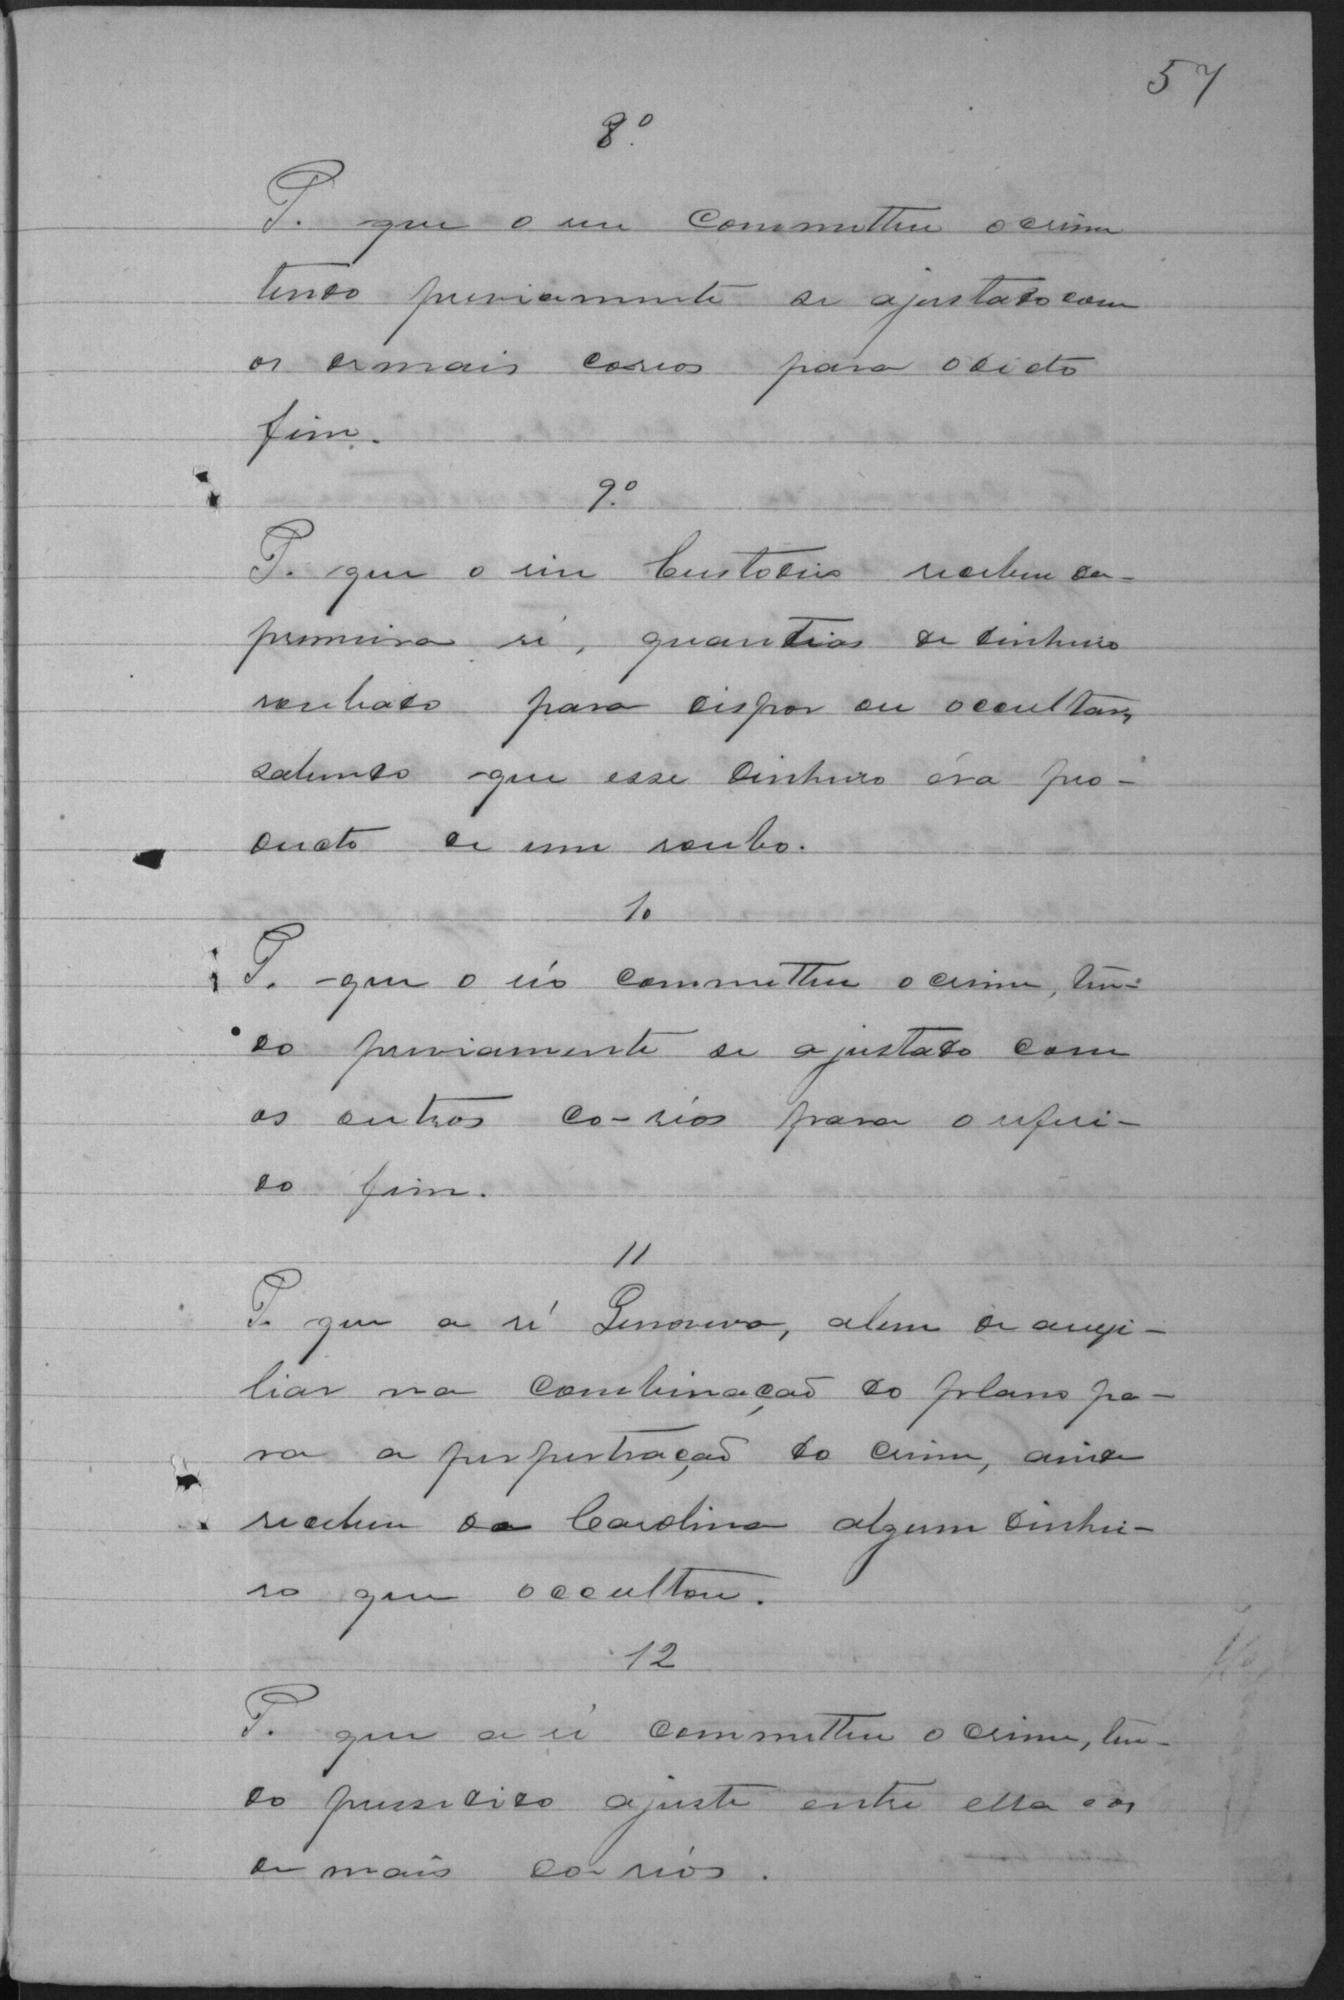 57
8.º
P. que o reu commetteu o crime
tendo previamente se ajustado com
os demais coreos para o dicto
fim.
9.º
P. que o réu Custodio recebeu da
primeira ré, quantias de dinheiro
roubado para dispor ou occultar,
sabendo que esse dinheiro éra pro-
ducto de um roubo.
10
P. que o réo commetteu o crime, ten-
do previamente se ajustado com
os outros co-réos para o referi-
do fim.
11
P. que a ré Genoveva, alem de auxi-
liar na combinação do plano pa-
ra a perpetração do crime, ainda
recebeu da Carolina algum dinhei-
ro que occultou.
12
P. que a ré commetteu o crime, ten-
do precedido ajuste entre ella e os
demais co-réos.